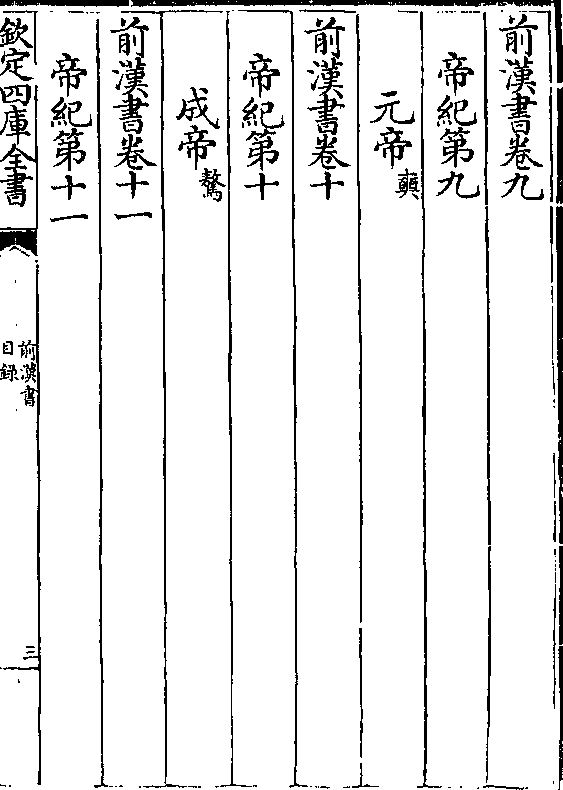 前漢書卷九
帝紀第九
元帝奭
前漢書卷十
帝紀第十
成帝驁
前漢書卷十一
帝紀第十一
欽定四庫全書
前漢書
目録
三